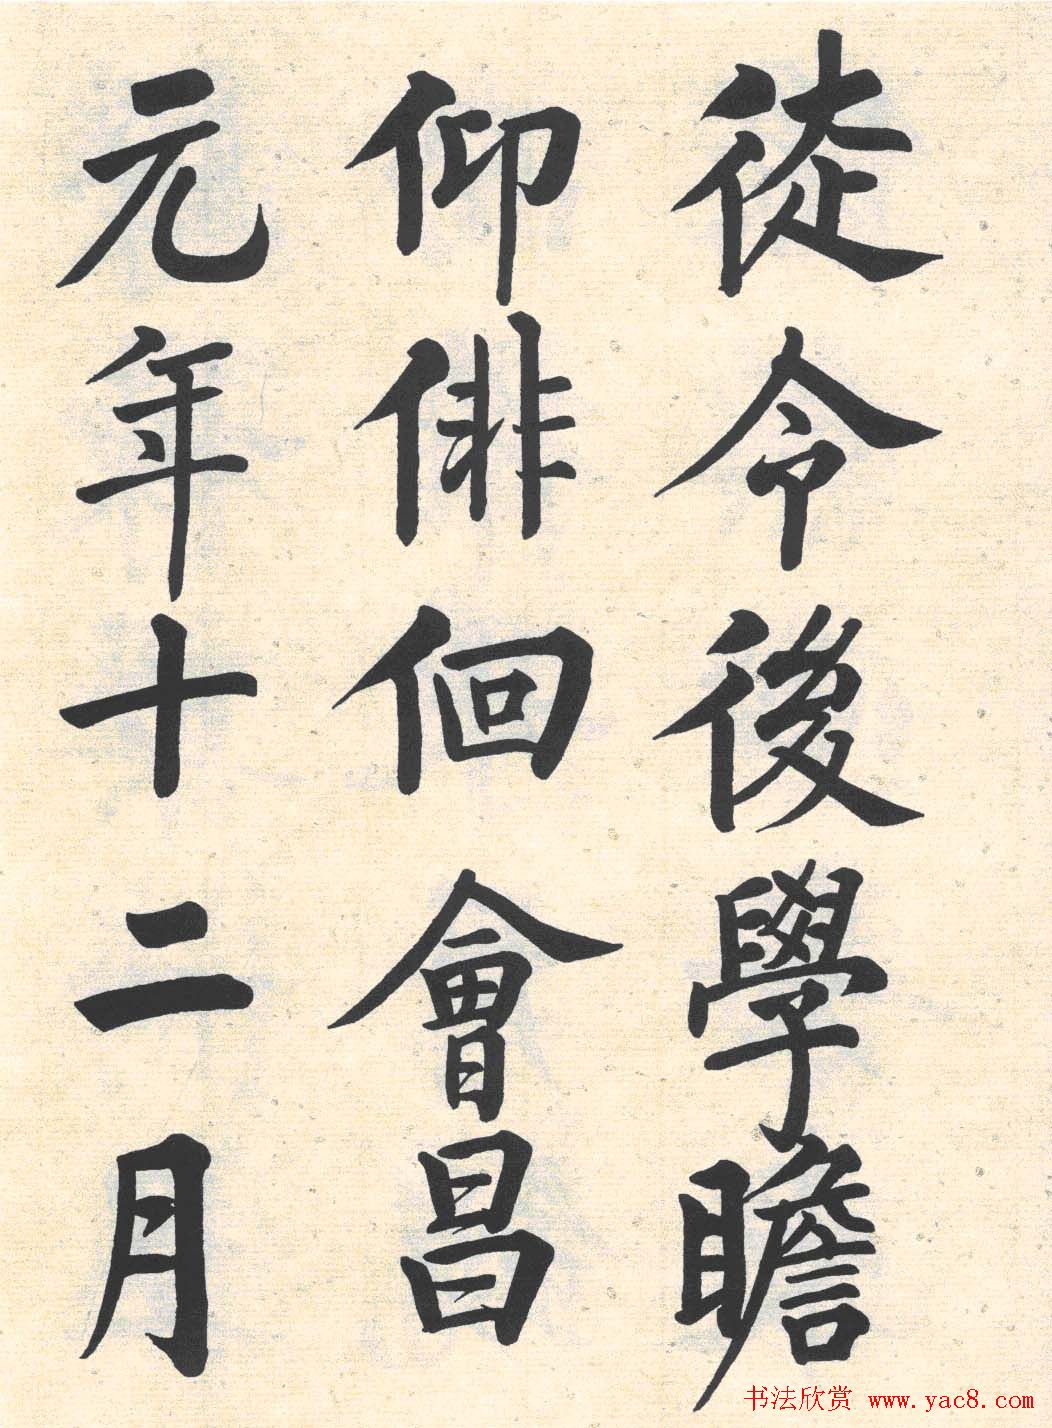 徒令後學瞻
仰俳佪會昌
元年十二月
书法欣赏 www.yac8.com